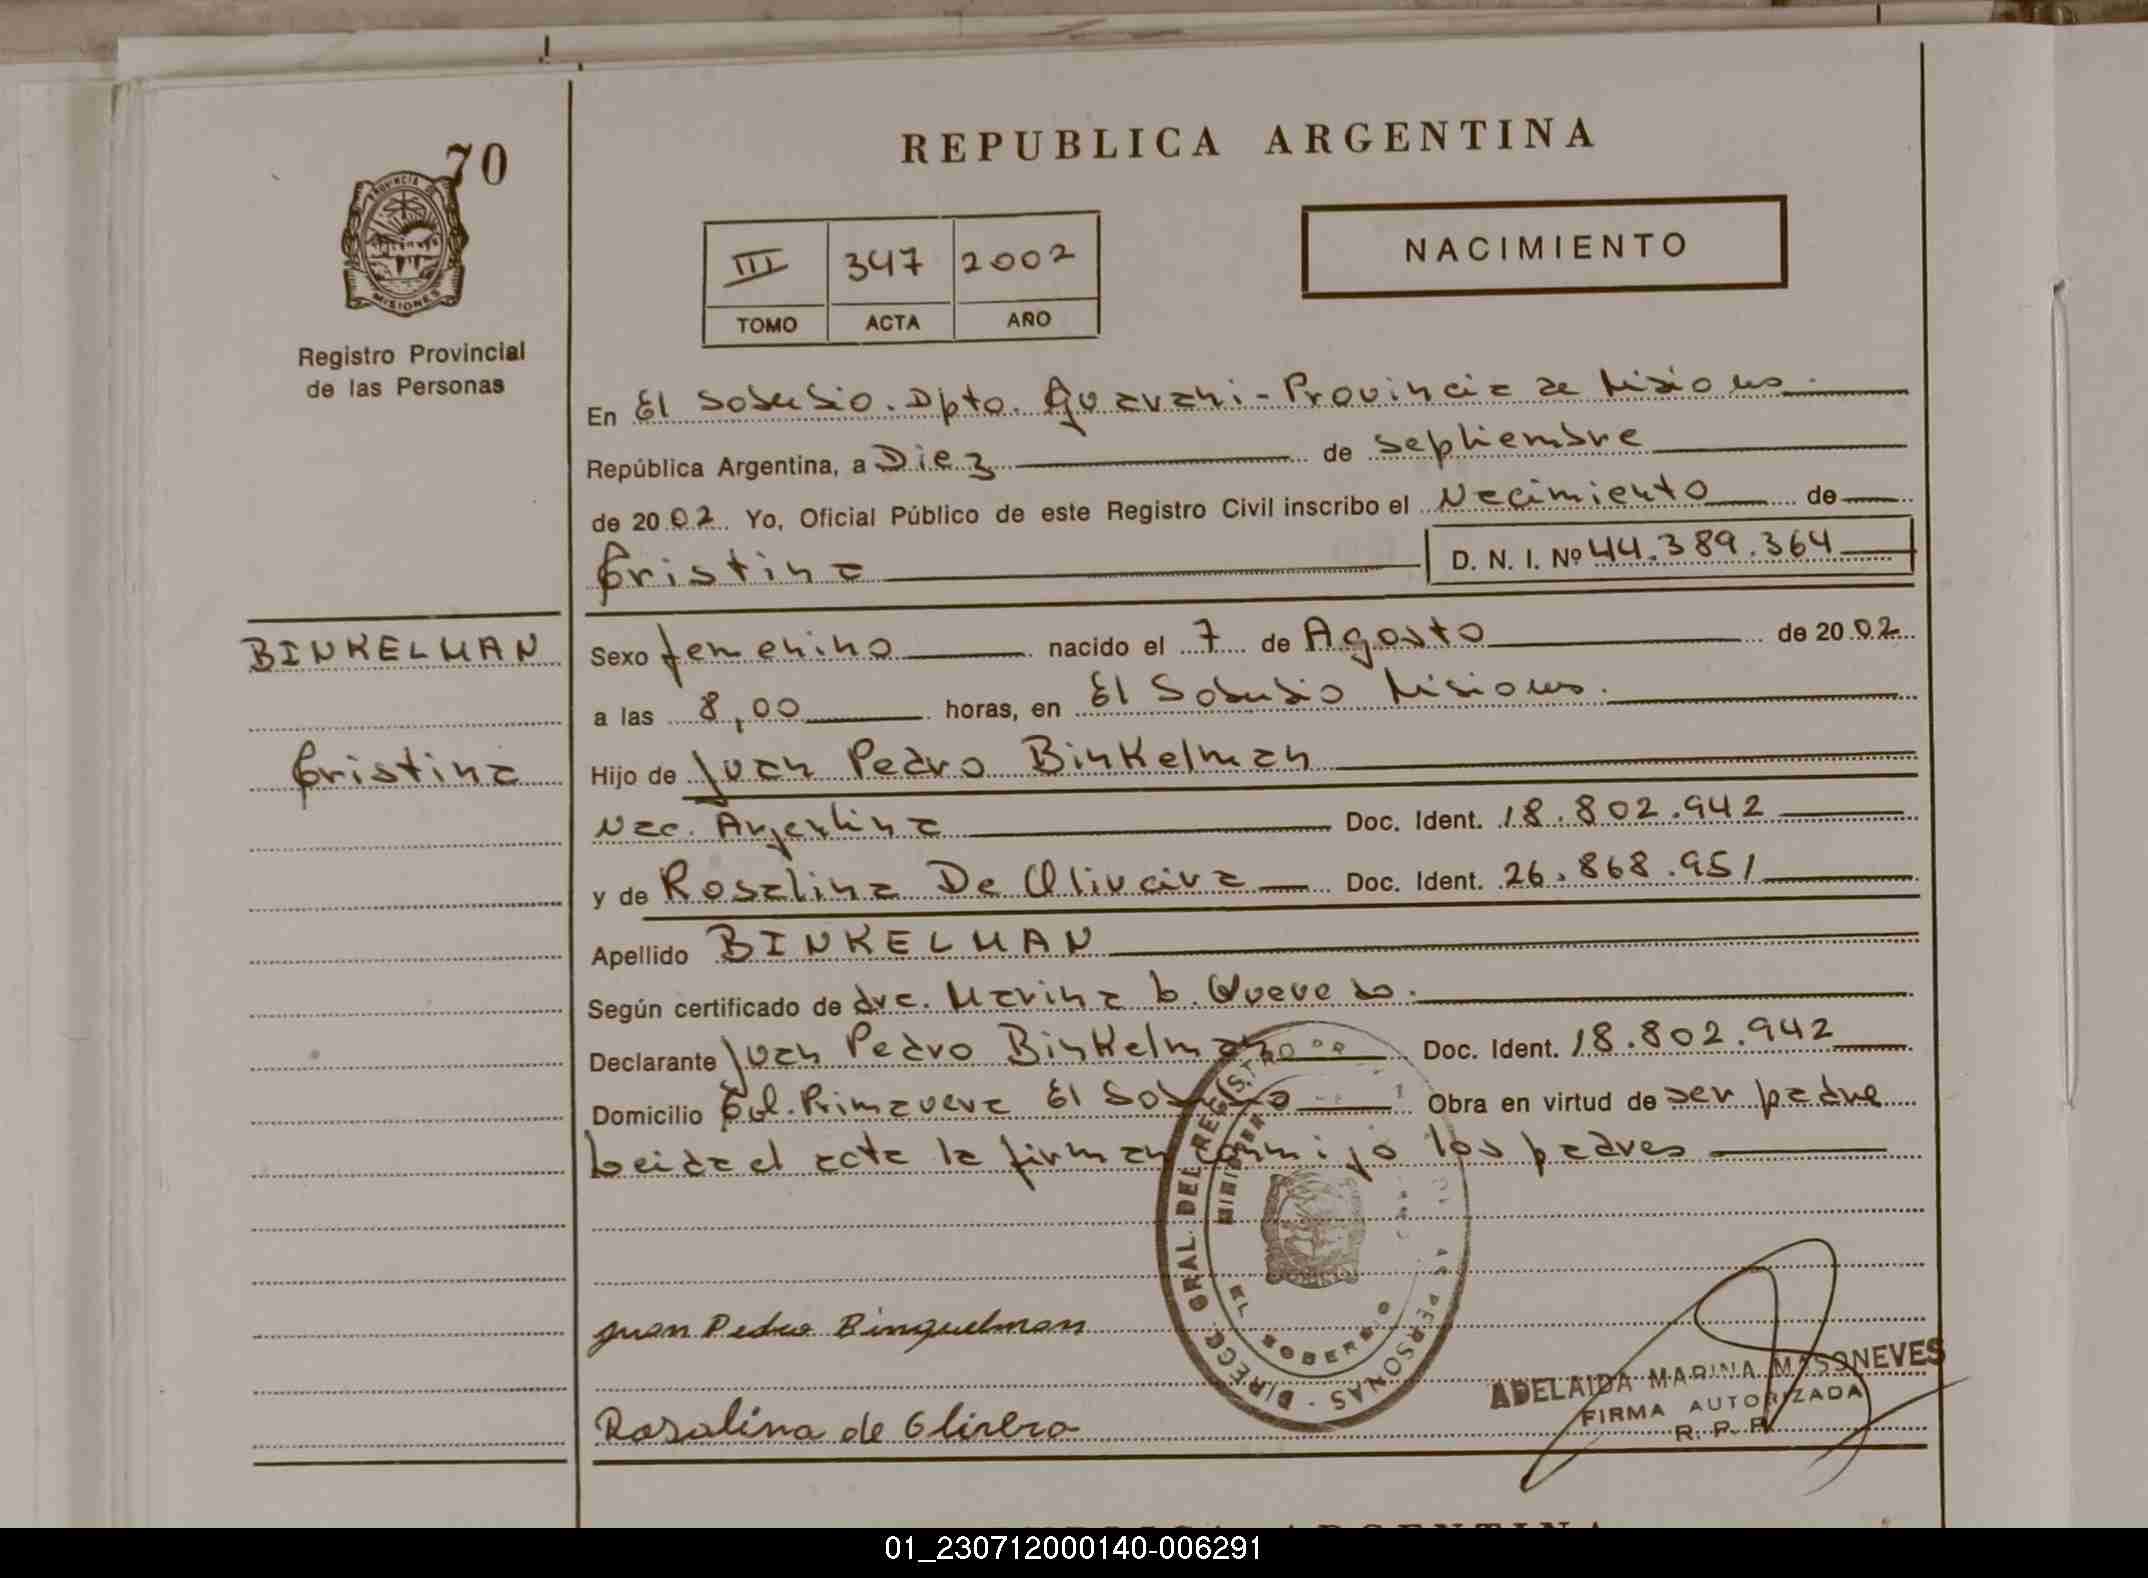 70
PROVINCIA DE
MISIONES
Registro Provincial
de las Personas
REPUBLICA ARGENTINA
III 347 2002
TOMO ACTA AÑO
NACIMIENTO
En El Soberbio. Dpto. Guarani - Provincia de Misiones.
República Argentina, a Diez de septiembre
de 2002 Yo, Oficial Público de este Registro Civil inscribo el Nacimiento de
Cristina D. N. I. Nº 44.389.364
BINKELMAN
Cristina
Sexo femenino nacido el 7 de Agosto de 2002
a las 8,00 horas, en El Soberbio Misiones.
Hijo de Juan Pedro Binkelman
Nac. Argentina Doc. Ident. 18.802.942
y de Rosalina De Oliveira Doc. Ident. 26.868.951
Apellido BINKELMAN
Según certificado de dra. Marina b. Quevedo.
Declarante Juan Pedro Binkelman Doc. Ident. 18.802.942
Domicilio Col. Primavera El Soberbio Obra en virtud de ser padre
Leida el acta la firman conmigo los padres
DIRECC. GRAL. DEL REGISTRO PERSONAS
EL SOBERBIO
Juan Pedro Binquelman
ADELAIDA MARINA MASONEVES
FIRMA AUTORIZADA
R. P. P.
Rosalina de Olivera
01_230712000140-006291